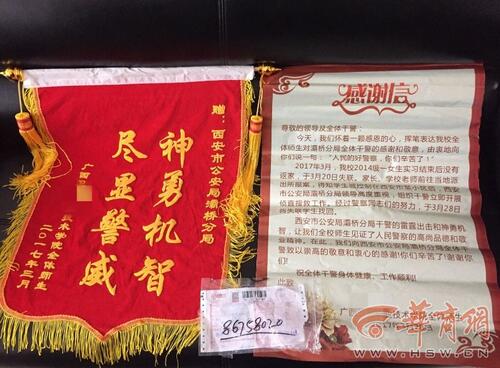 赠：西安市公安局灞桥分局
神勇机智
尽显警威
广西
技术学院全体师生
二〇一七年三月
感谢信
尊敬的领导及全体干警：
今天，我们怀着一颗感恩的心，挥笔表达我校
全体师生对灞桥分局全体干警的感谢和敬意，由衷地向
你们说一句："人民的好警察，你们辛苦了！"
2017年3月，我校2014级一女生实习结束后没有
返家，于3月20日失联。家长、学校老师前往当地派
出所报案，得知学生被控制在西安市某小区后，西
安市公安局灞桥分局领导高度重视，组织干警立即开展
侦查摸排工作。经过警察同志们的努力，于3月28日
学生找回。
西安市公安局灞桥分局干警的雷厉出击和神勇机
智，让我们全校师生见证了人民警察的高尚品德和敬
业精神。在此，我们向西安市公安局灞桥分局全体干
警致以崇高的敬意和衷心的感谢！你们辛苦了！谢谢你
们！
祝全体干警身体健康、工作顺利！
此致
广西
技术学院全体师生
86758020
华商网
WWW.HSW.CN